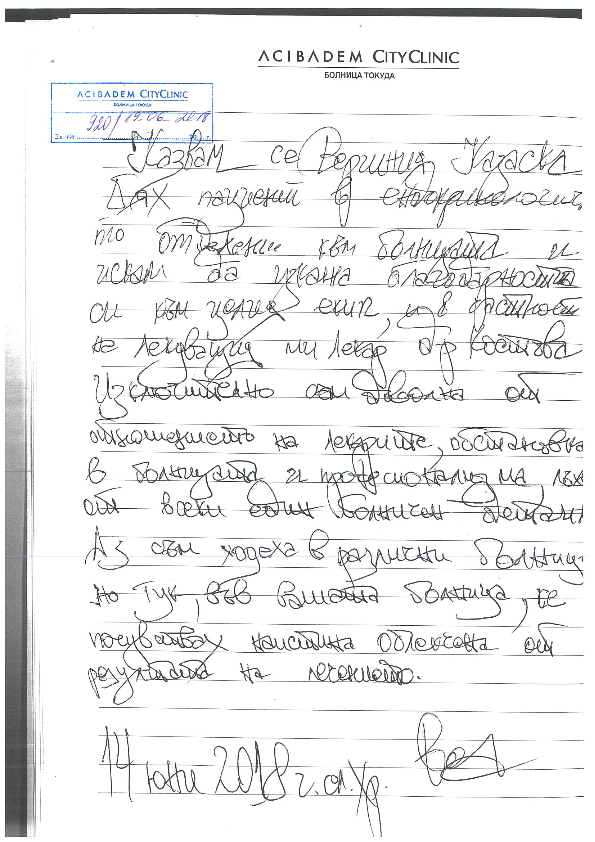 ACIBADEM CITYCLINIC
БОЛНИЦА ТОКУДА
ACIBADEM CITYCLINIC
БОЛНИЦА ТОКУДА
920/19.06.2018
Казвам се
Бях пациент в ендокринологич
то отделение към болницата и
искам да изкажа благодарността
си към целия екип, и в частност
на лекуващия ми лекар д-р Костова
Изключително съм доволна от
отношението на лекарите, обстановка
в болницата и професионализма, лъх
от всеки един болничен детайл
Аз съм ходеха в различни болниц
но тук, във вашата болница, се
почувствах наистина облекчена от
резултата на лечението.
14 юни 2018 г. сл.Хр.